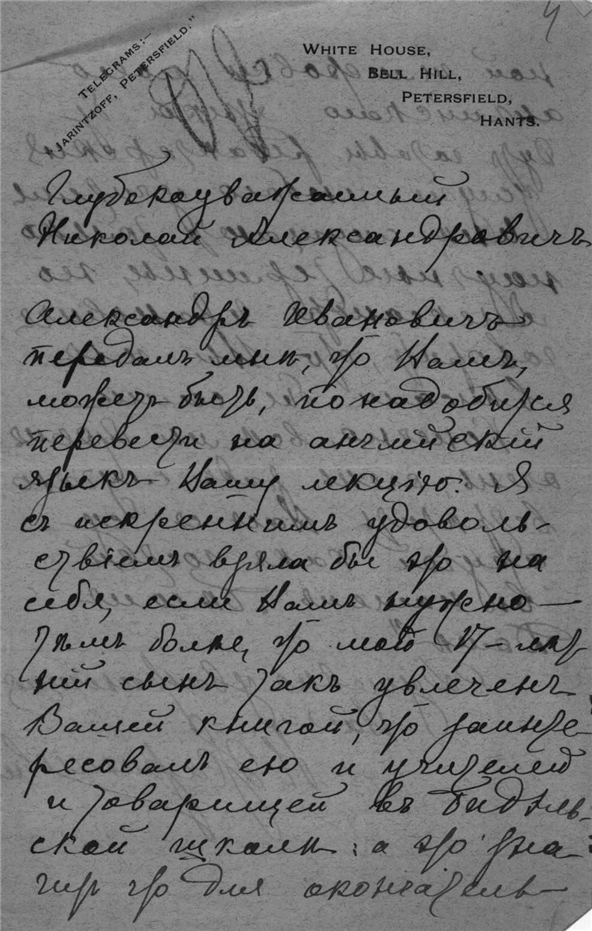 4
TELEGRAMS:—
"JARINTZOFF, PETERSFIELD."
WHITE HOUSE,
BELL HILL,
PETERSFIELD,
HANTS.
Глубокоуважаемый
Николай Александровичъ
Александръ Ивановичъ
передалъ мнѣ, что Вамъ,
можетъ быть, понадобится
перевести на англійскій
языкъ Вашу лекцію. Я
съ искреннимъ удоволь-
ствіемъ взяла бы это на
себя, если Вамъ нужно —
тѣмъ болѣе, что мой 17-лѣт
ній сынъ такъ увлеченъ
Вашей книгой, что заинте-
ресовалъ ею и учителей
и товарищей въ Бидэль-
ской школѣ: а это зна-
читъ что для окончатель-